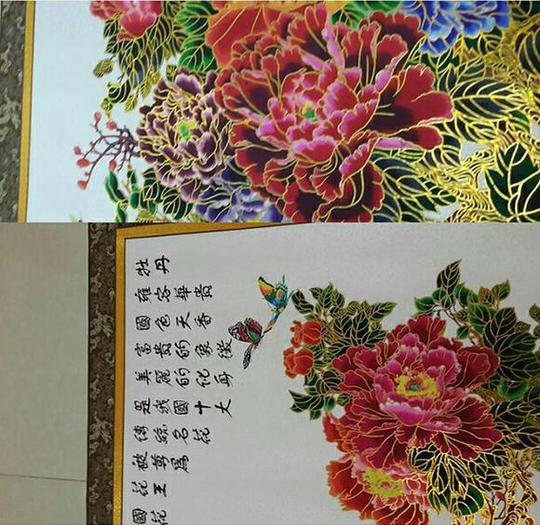 牡丹
雍容華貴
國色天香
富貴的象徵
美麗的化身
是我國十大
傳統名花
被尊為
花王
國花